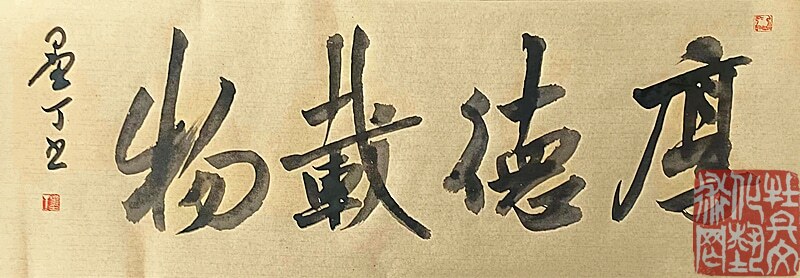 厚德載物
墨丁书